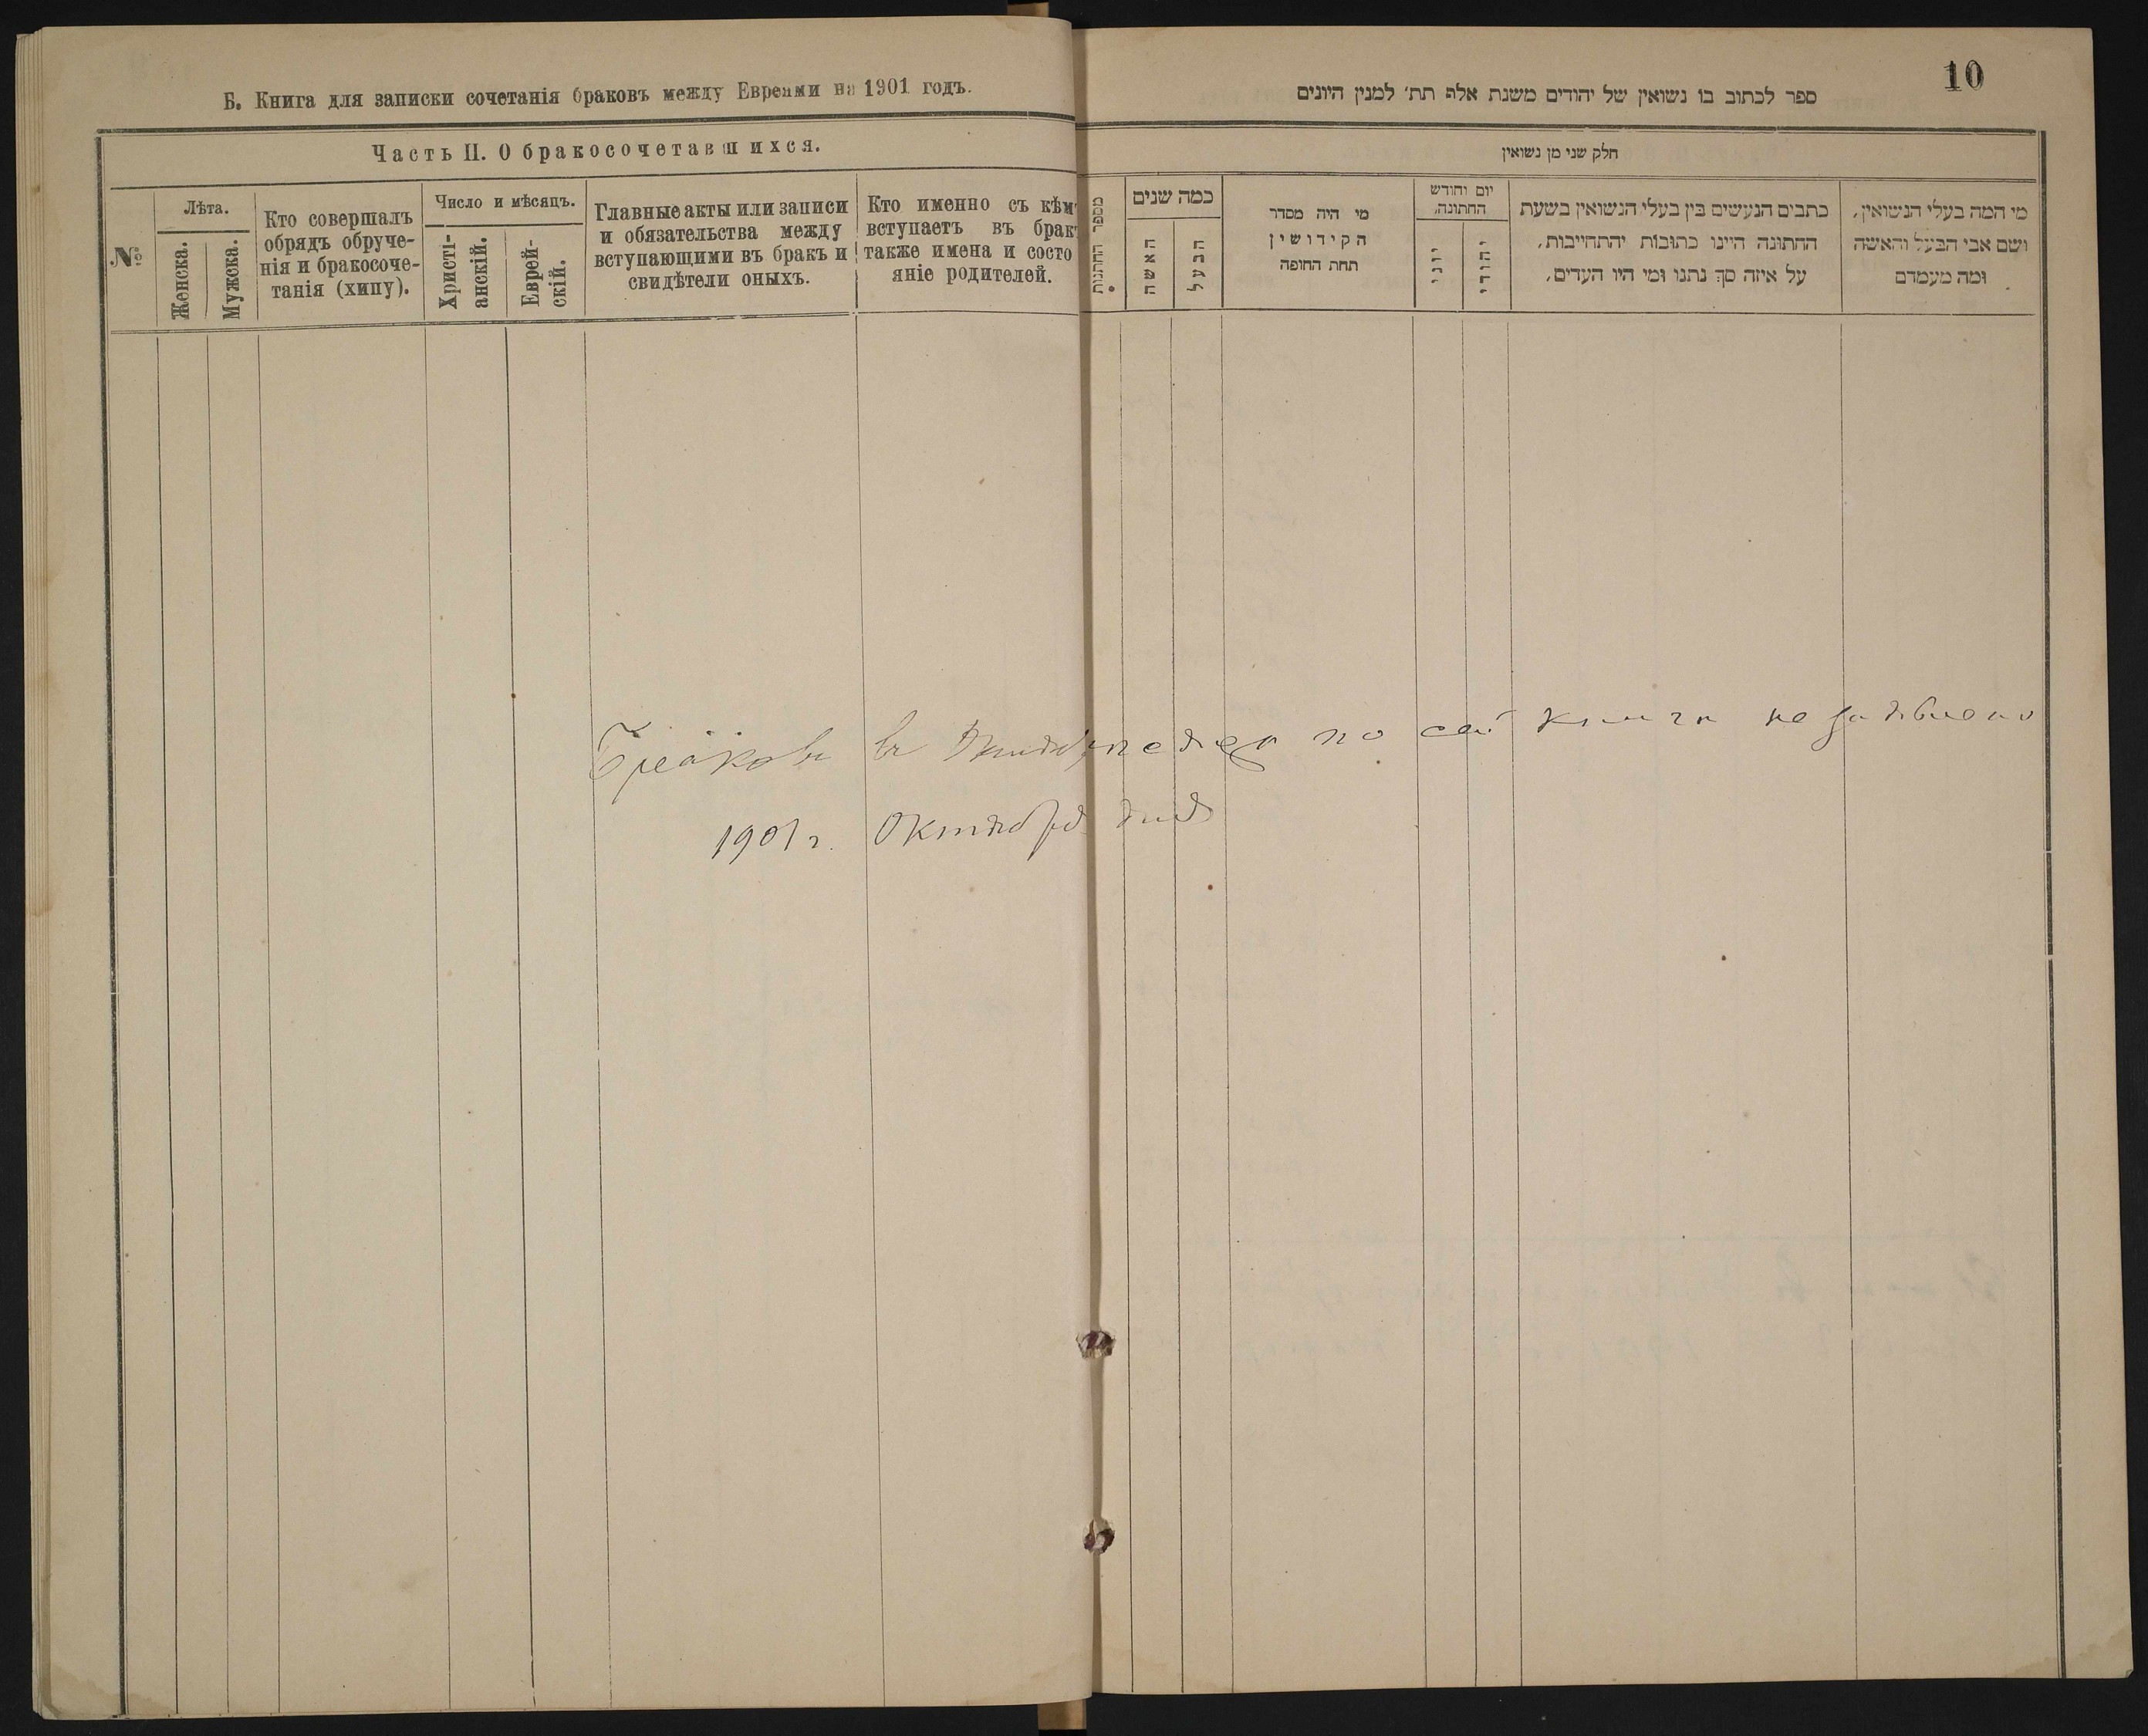 Б. Книга для записки сочетанія браковъ между Евреями на 1901 годъ.
Часть II. О бракосочетавшихся.
№
Лѣта.
Женска.
Мужска.
Кто совершалъ
обрядъ обруче-
нія и бракосоче-
танія (хипу).
Число и мѣсяцъ.
Христі-
анскій.
Еврей-
скій.
Главные акты или записи
и обязательства между
вступающими въ бракъ и
свидѣтели оныхъ.
Кто именно съ кѣмъ
вступаетъ въ бракъ
также имена и состо
яніе родителей.
10
ספר לכתוב בו נשואין של יהודים משנת אלף תת׳ למנין היונים
חלק שני מן נשואין
מי המה בעלי הנשואין,
ושם אבי הבעל והאשה
ומה מעמדם
כתבים הנעשים בין בעלי הנשואין בשעת
החתונה היינו כתובות והתחייבות,
על איזה סך נתנו ומי היו העדים,
יום וחודש
החתונה,
יהודי
יוני
מי היה מסדר
הקידושין
תחת החופה
כמה שנים
הבעל
האשה
מספר החתונות
Браковъ въ по сей книги не заявлено
1901 г. Октября дня